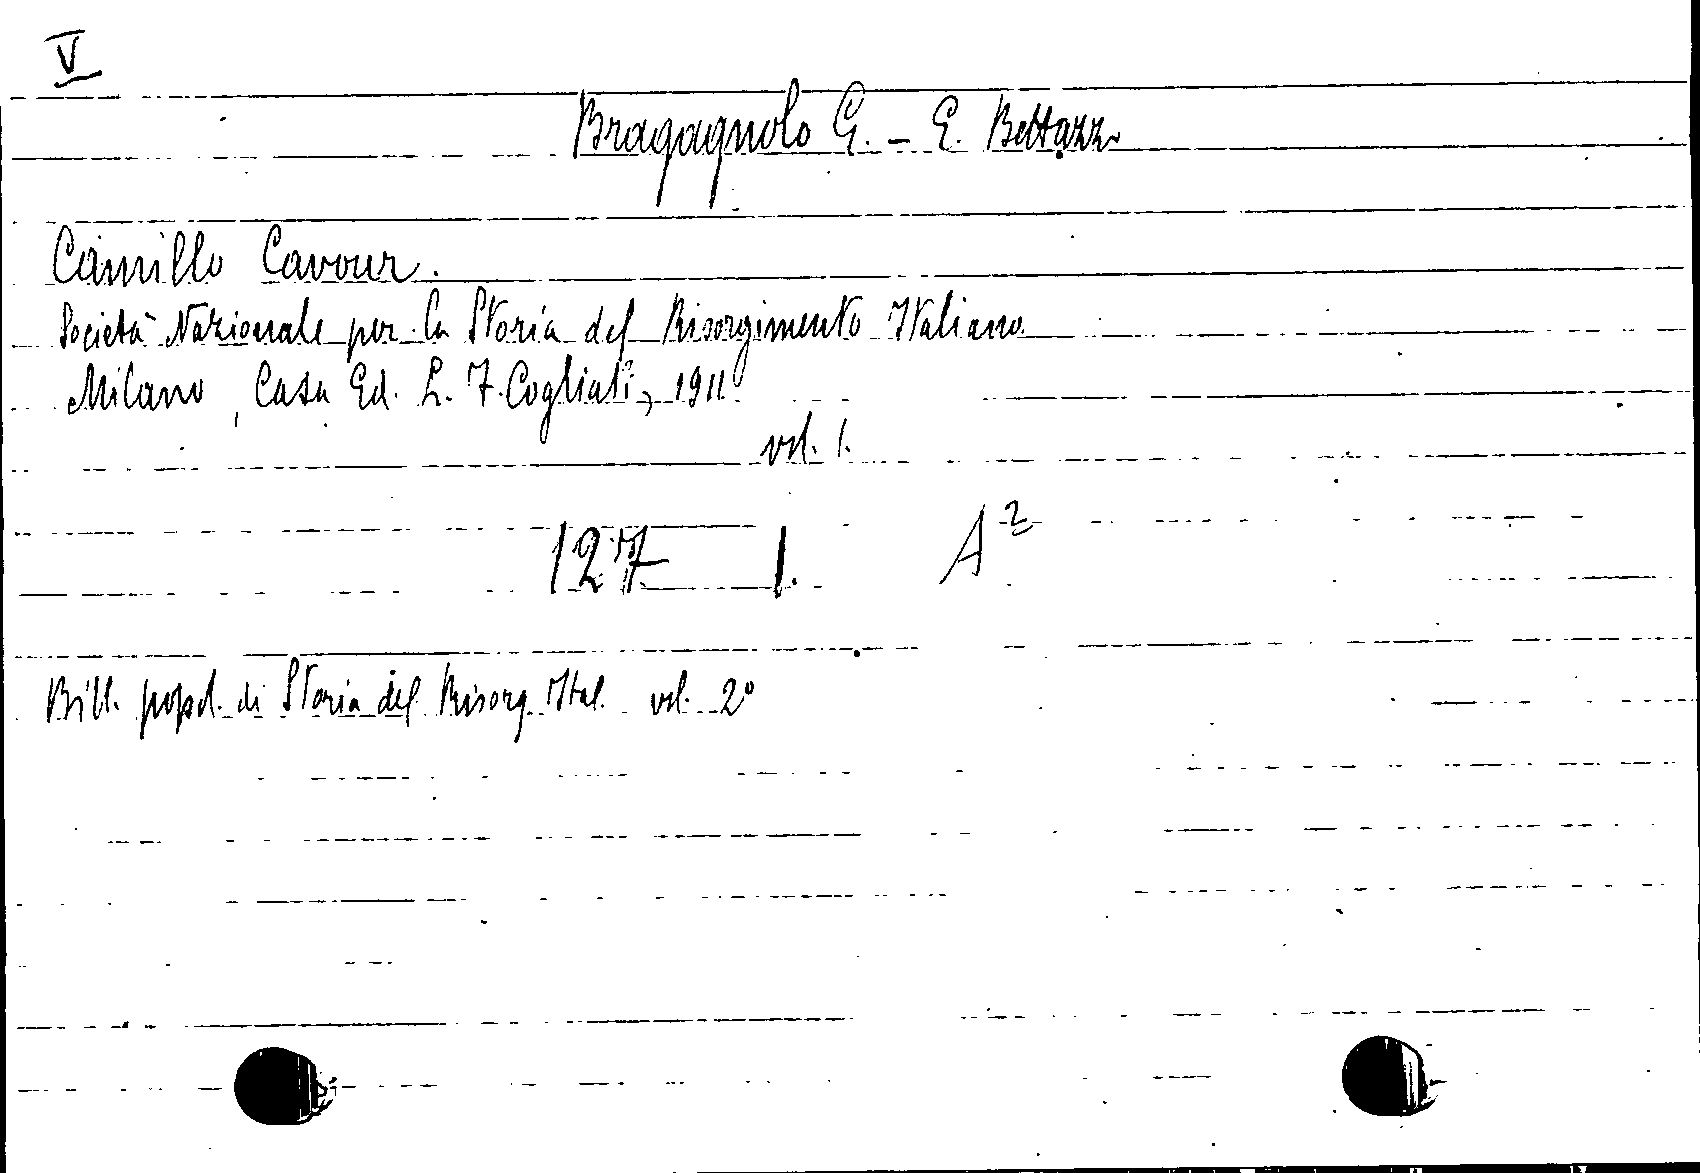 V
Bragagnolo G. - E. Bettazzi
Camillo Cavour.
Società Nazionale per la Storia del Risorgimento Italiano
Milano, Casa Ed. L. F. Cogliati, 1911
vol. 1.
127 1. A²
Bibl. popol. di Storia del Risorg. Ital. vol. 2°